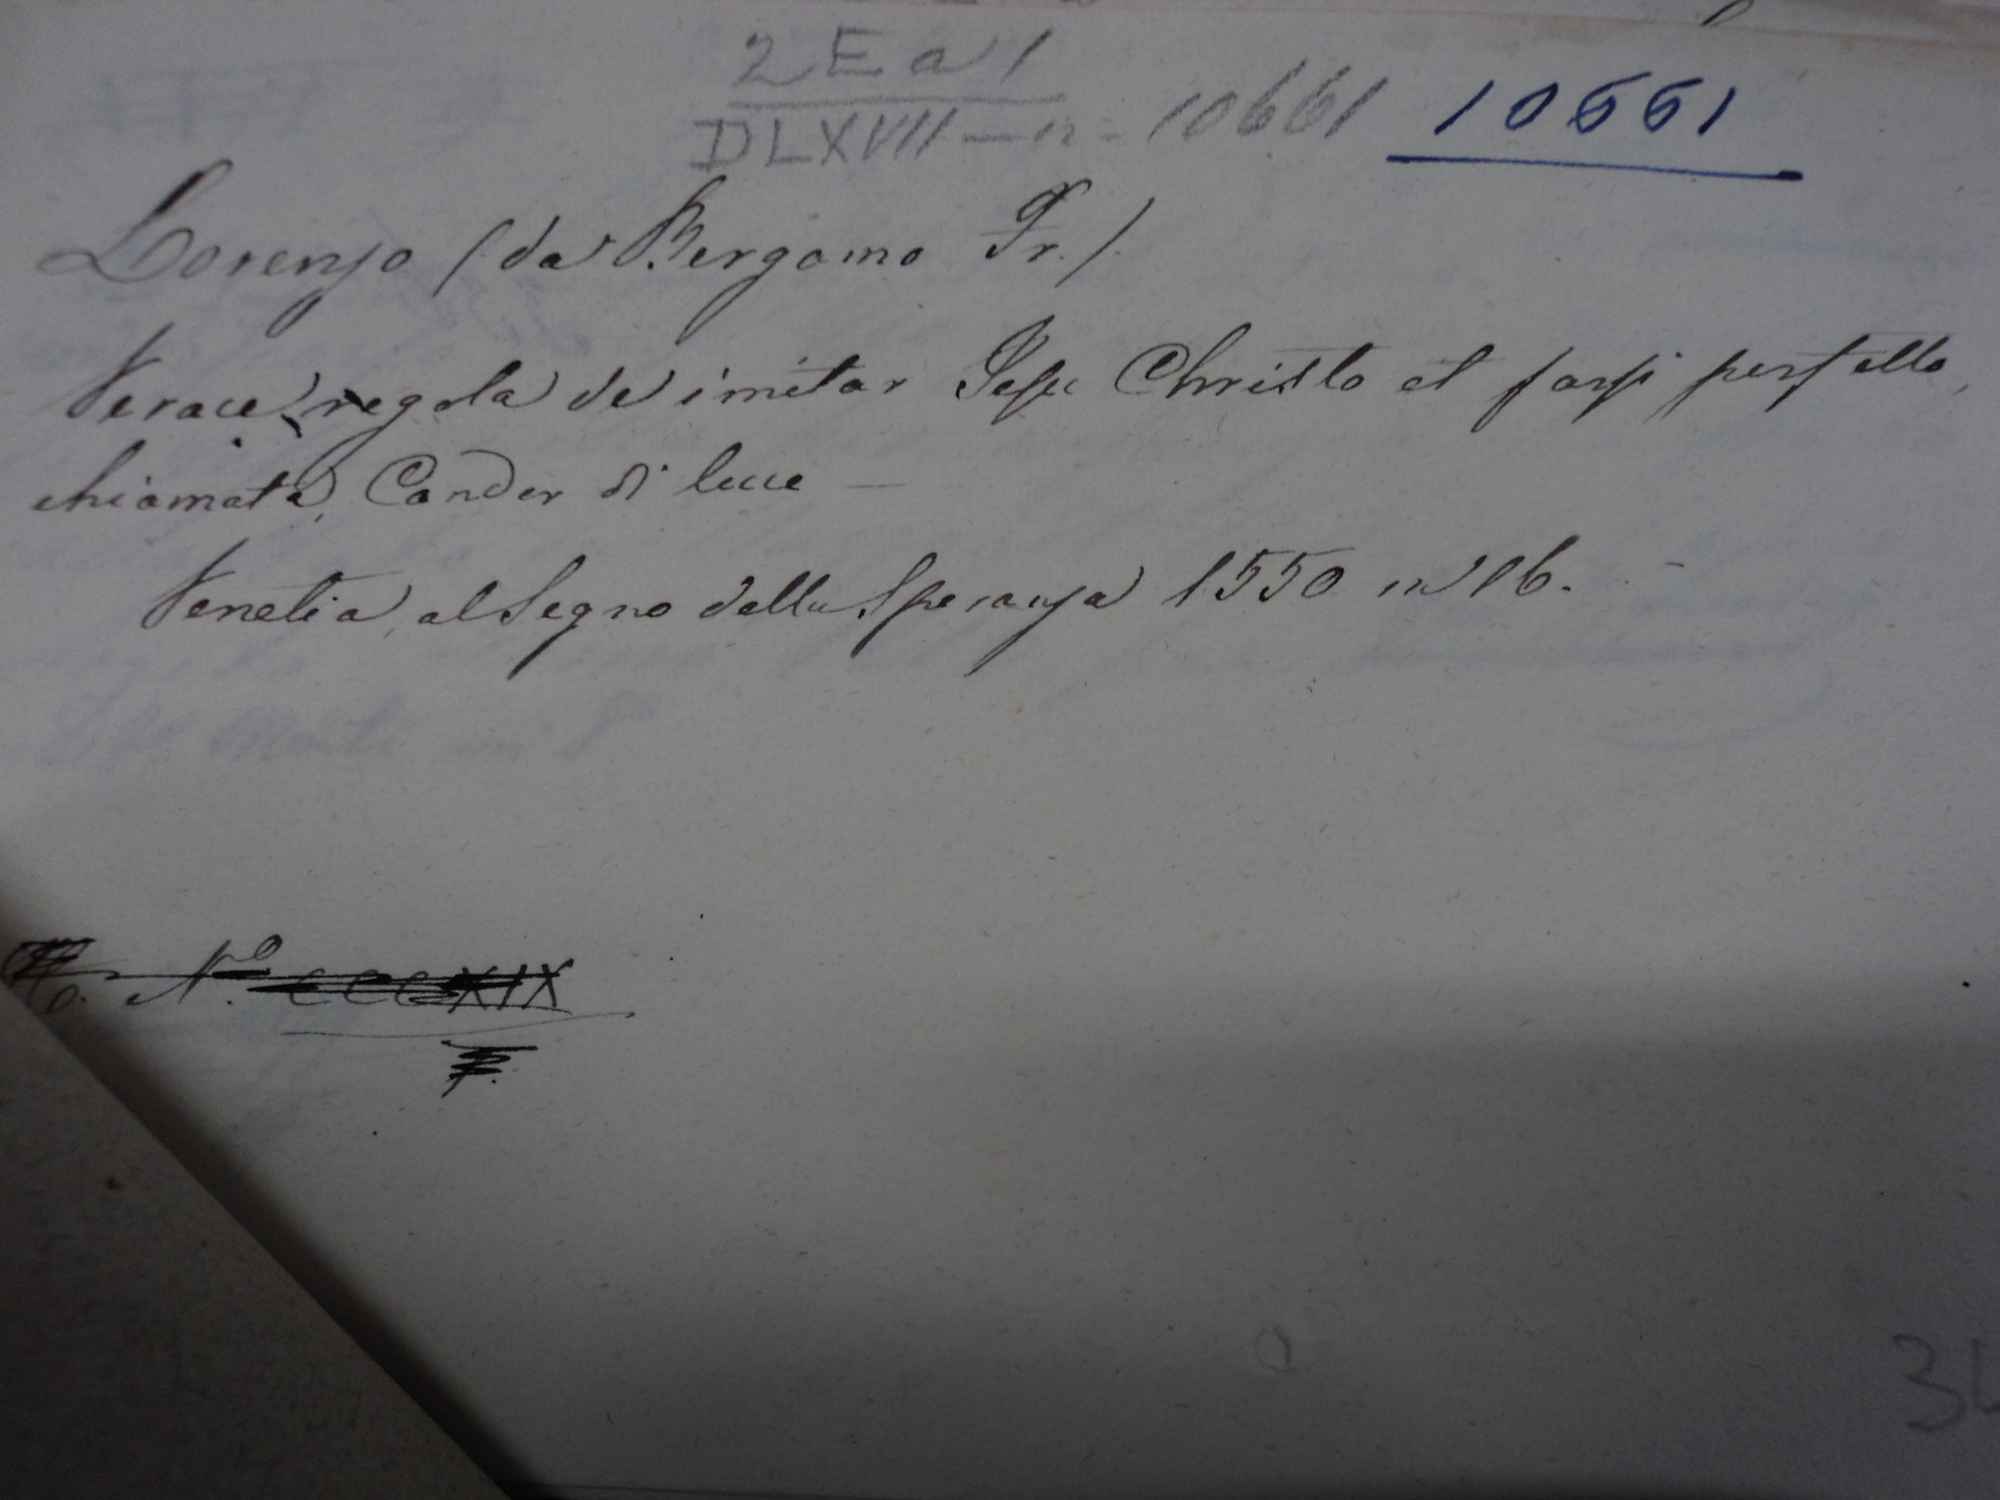 2 E a 1
DLXVII - n = 10661 10661
Lorenzo (da Bergamo Fr.)
Verace regola de imitar Jesu Christo et farsi perfetto,
chiamata, Candor di luce —
Venetia, al Segno della Speranza 1550 in 16. -
N.o CCCXIX